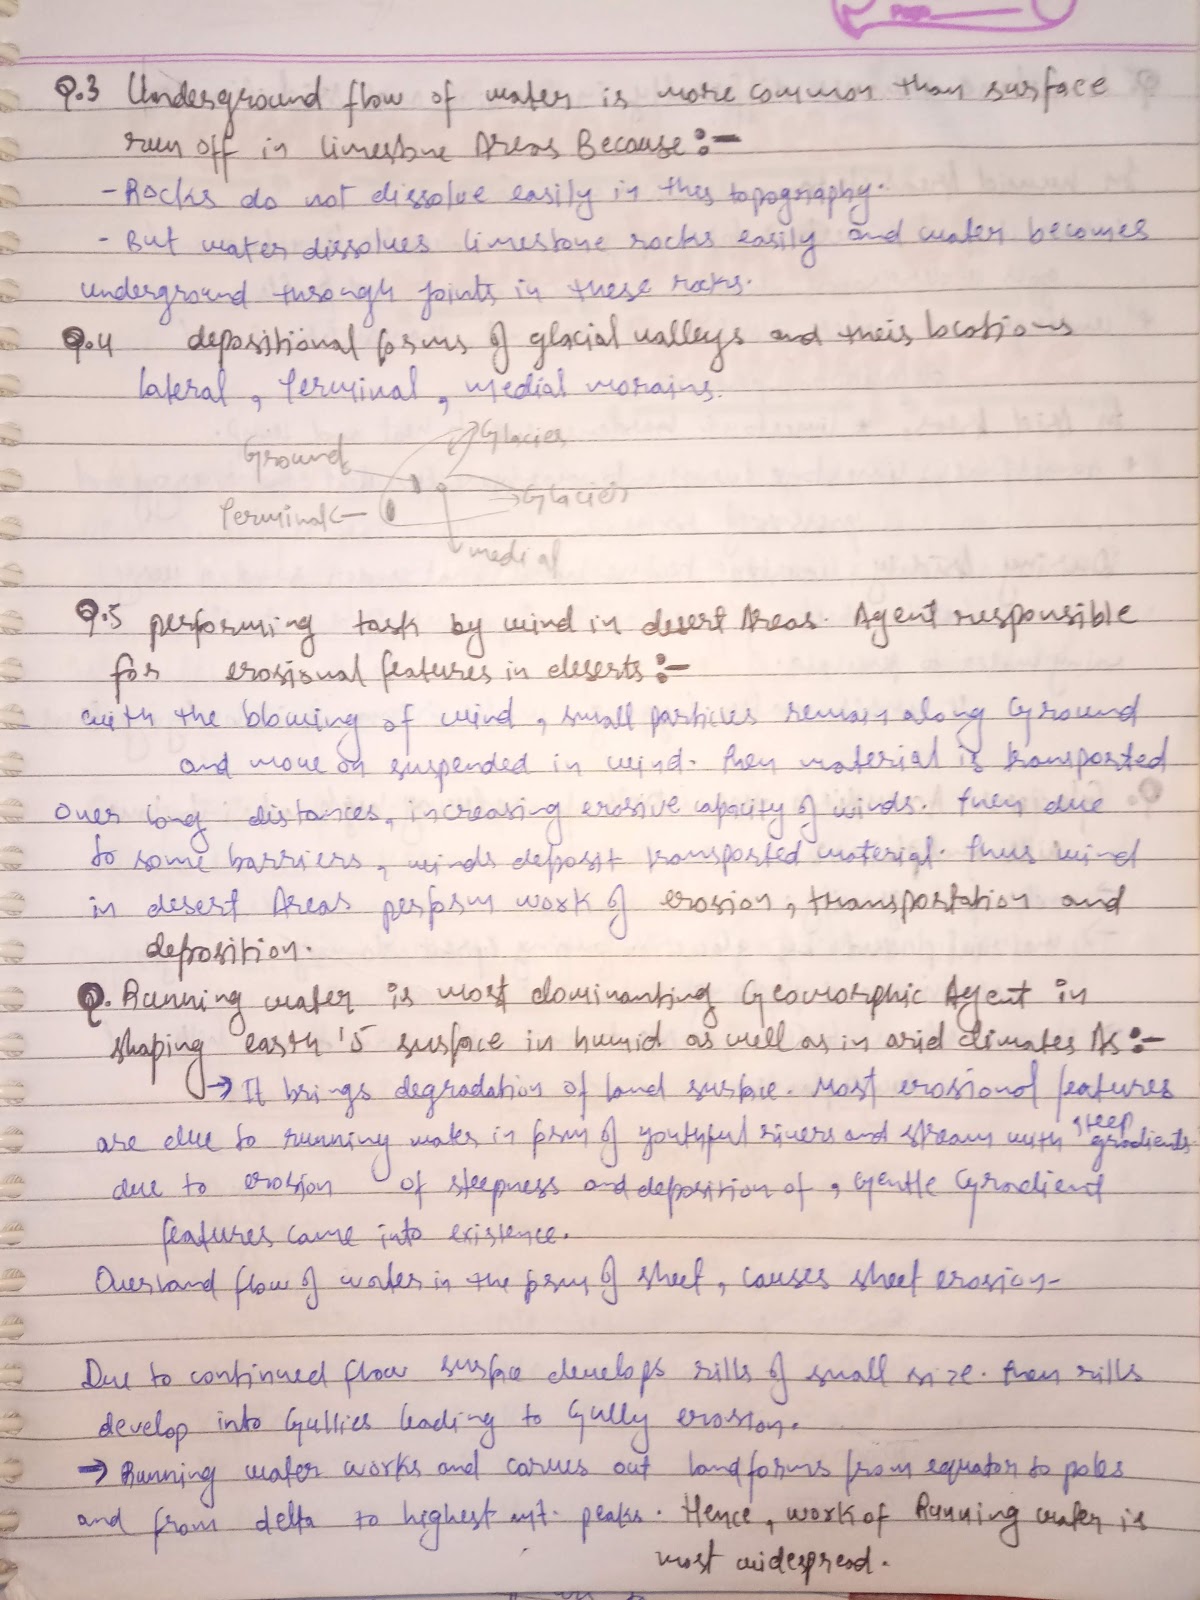 Page
Q.3 Underground flow of water is more common than surface
run off in limestone Areas Because :-
- Rocks do not dissolve easily in this topography.
- But water dissolves limestone rocks easily and water becomes
underground through joints in these rocks.
Q.4 depositional forms of glacial valleys and their locations
lateral, Terminal, medial morains.
Glacier
Ground
Glacier
Terminal
medial
Q.5 performing task by wind in desert Areas. Agent responsible
for erosional features in deserts :-
with the blowing of wind, small particles remain along Ground
and move on suspended in wind. then material is transported
over long distances, increasing erosive capacity of winds. then due
to some barriers, winds deposit transported material. thus wind
in desert Areas perform work of erosion, transportation and
deposition.
Q. Running water is most dominanting Geomorphic Agent in
shaping earth's surface in humid as well as in arid climates As :-
→ It brings degradation of land surface. Most erosional features
are due to running water in form of youthful rivers and stream with steep gradients
due to erosion of steepness and deposition of, Gentle Gradient
features came into existence.
Overland flow of water in the form of sheet, causes sheet erosion-
Due to continued flow surface develops rills of small size. then rills
develop into Gullies leading to Gully erosion.
→ Running water works and carves out landforms from equator to poles
and from delta to highest mt. peaks. Hence, work of Running water is
most widespread.